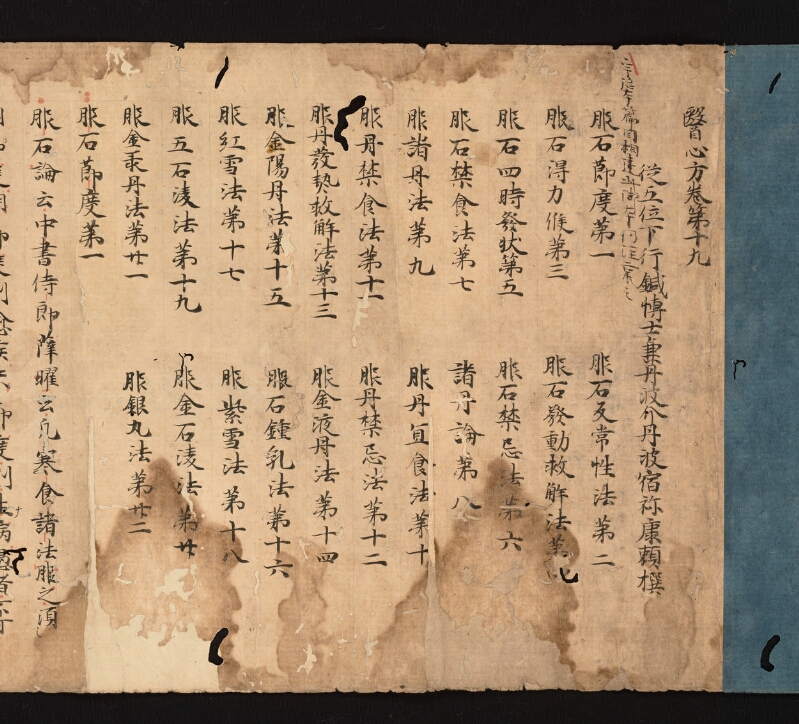 醫心方卷第十九
從五位下行鍼博士兼丹波介丹波宿祢康頼撰
服石節度第一 服石反常性法第二
服石得力候第三 服石發動救解法第四
服石四時發狀第五 服石禁忌法第六
服石禁食法第七 諸丹論第八
服諸丹法第九 服丹宜食法第十
服丹禁食法第十一 服丹禁忌法第十二
服丹發熱救解法第十三 服金液丹法第十四
服金陽丹法第十五 服石鍾乳法第十六
服紅雪法第十七 服紫雪法第十八
服五石凌法第十九 服金石凌法第廿
服金汞丹法第廿一 服銀丸法第廿二
服石節度第一
服石論云中書侍郎薛曜云凡寒食諸法服之須